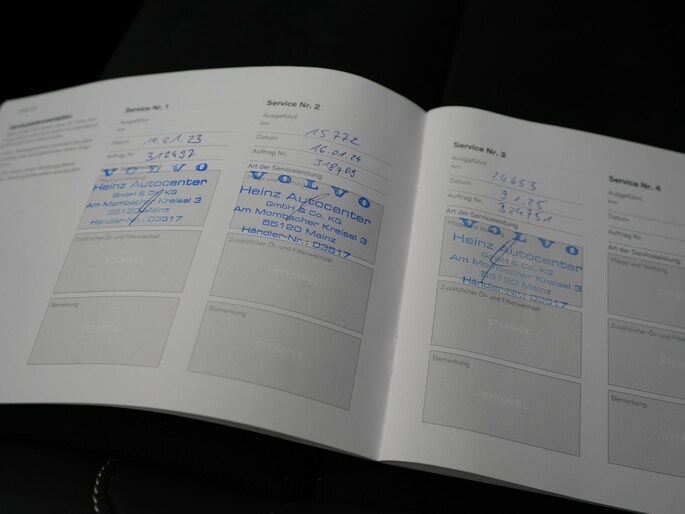 Service Nr. 1
Ausgeführt
km
Datum 10.01.23
Auftrag Nr. 312497
VOLVO
Heinz Autocenter
GmbH & Co. KG
Am Mombacher Kreisel 3
55120 Mainz
Händler-Nr.: 03517
Zusätzlicher Öl- und Filterwechsel
STEMPEL
Bemerkung
STEMPEL
Service Nr. 2
Ausgeführt
km 15772
Datum 16.01.24
Auftrag Nr. 318709
Art der Serviceleistung
VOLVO
Heinz Autocenter
GmbH & Co. KG
Am Mombacher Kreisel 3
55120 Mainz
Händler-Nr.: 03517
Zusätzlicher Öl- und Filterwechsel
STEMPEL
Bemerkung
STEMPEL
Service Nr. 3
Ausgeführt
km 24653
Datum 9.1.25
Auftrag Nr. 324751
Art der Serviceleistung
VOLVO
Heinz Autocenter
GmbH & Co. KG
Am Mombacher Kreisel 3
55120 Mainz
Händler-Nr.: 03517
Zusätzlicher Öl- und Filterwechsel
STEMPEL
Bemerkung
STEMPEL
Service Nr. 4
Ausgeführt
km
Datum
Auftrag Nr.
Art der Serviceleistung
Pflege und Wartung
Zusätzlicher Öl- und Filterwechsel
Bemerkung